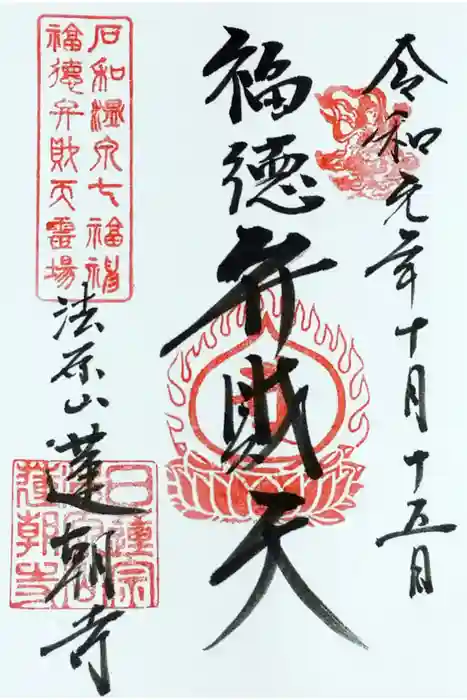 令和元年十月十五日
福徳弁財天
石和温泉七福神
福徳弁財天霊場
法原山 蓮朝寺
日蓮宗
法原山
蓮朝寺